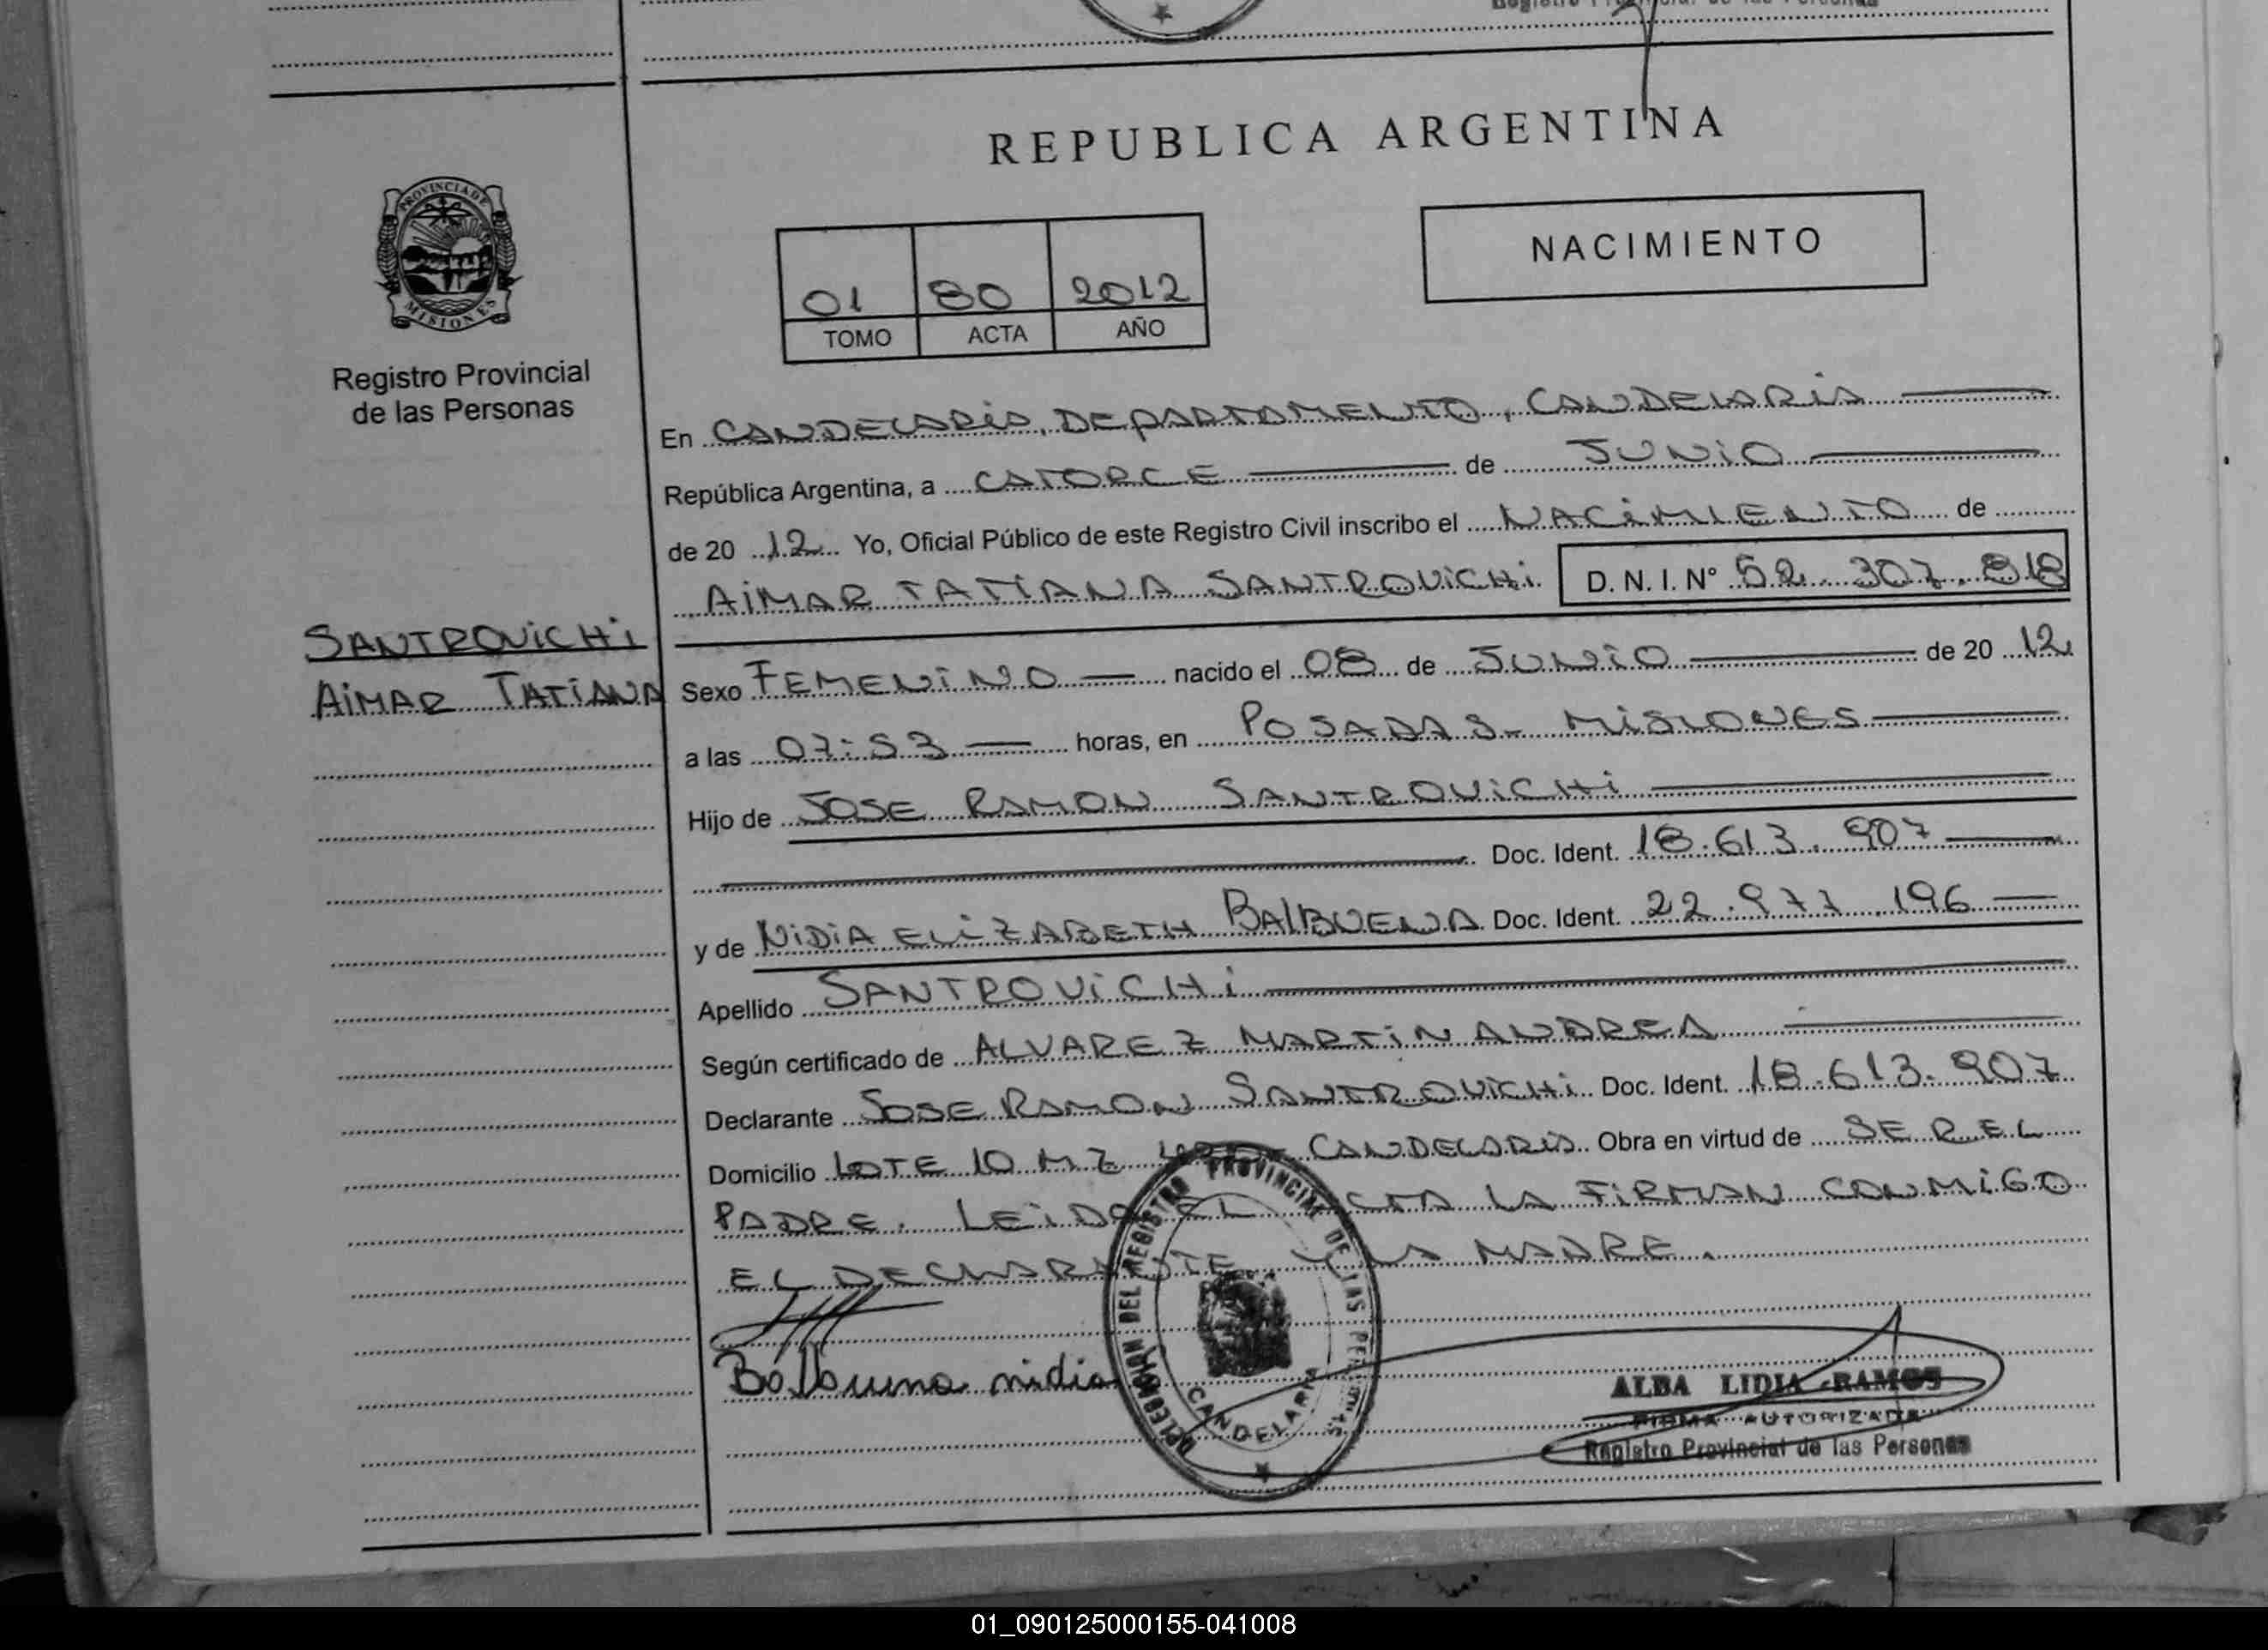 REPUBLICA ARGENTINA
PROVINCIA DE
MISIONES
Registro Provincial
de las Personas
NACIMIENTO
01 80 2012
TOMO ACTA AÑO
En CANDELARIA, DEPARTAMENTO, CANDELARIA
República Argentina, a CATORCE de JUNIO
de 20 12 Yo, Oficial Público de este Registro Civil inscribo el NACIMIENTO de
AIMAR TATIANA SANTROVICHI D. N. I. N° 52.307.818
SANTROVICHI
AIMAR TATIANA
Sexo FEMENINO nacido el 08 de JUNIO de 20 12
a las 07:53 horas, en POSADAS- MISIONES
Hijo de JOSE RAMON SANTROVICHI
Doc. Ident. 18.613.907
y de NIDIA ELIZABETH BALBUENA Doc. Ident. 22.977.196
Apellido SANTROVICHI
Según certificado de ALVAREZ MARTIN ANDREA
Declarante JOSE RAMON SANTROVICHI Doc. Ident. 18.613.907
Domicilio LOTE 10 MZ CANDELARIA Obra en virtud de SER EL
PADRE. LEIDA EL ACTA LA FIRMAN CONMIGO
EL DECLARANTE Y LA MADRE.
Balbuena nidia
DELEGACION DEL REGISTRO PROVINCIAL DE LAS PERSONAS
CANDELARIA
ALBA LIDIA RAMOS
FIRMA AUTORIZADA
Registro Provincial de las Personas
01_090125000155-041008